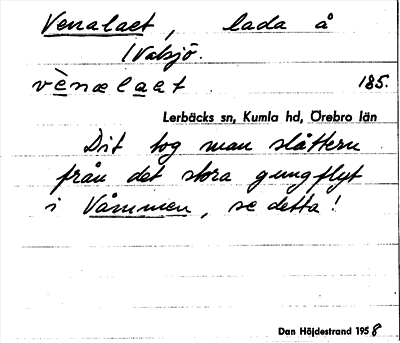 Venalaet, lada å
1 Valsjö.
vènælaat 185.
Lerbäcks sn, Kumla hd, Örebro län
Dit tog man slåttern
från det stora gungflyt
i Våmmen, se detta!
Dan Höjdestrand 1958